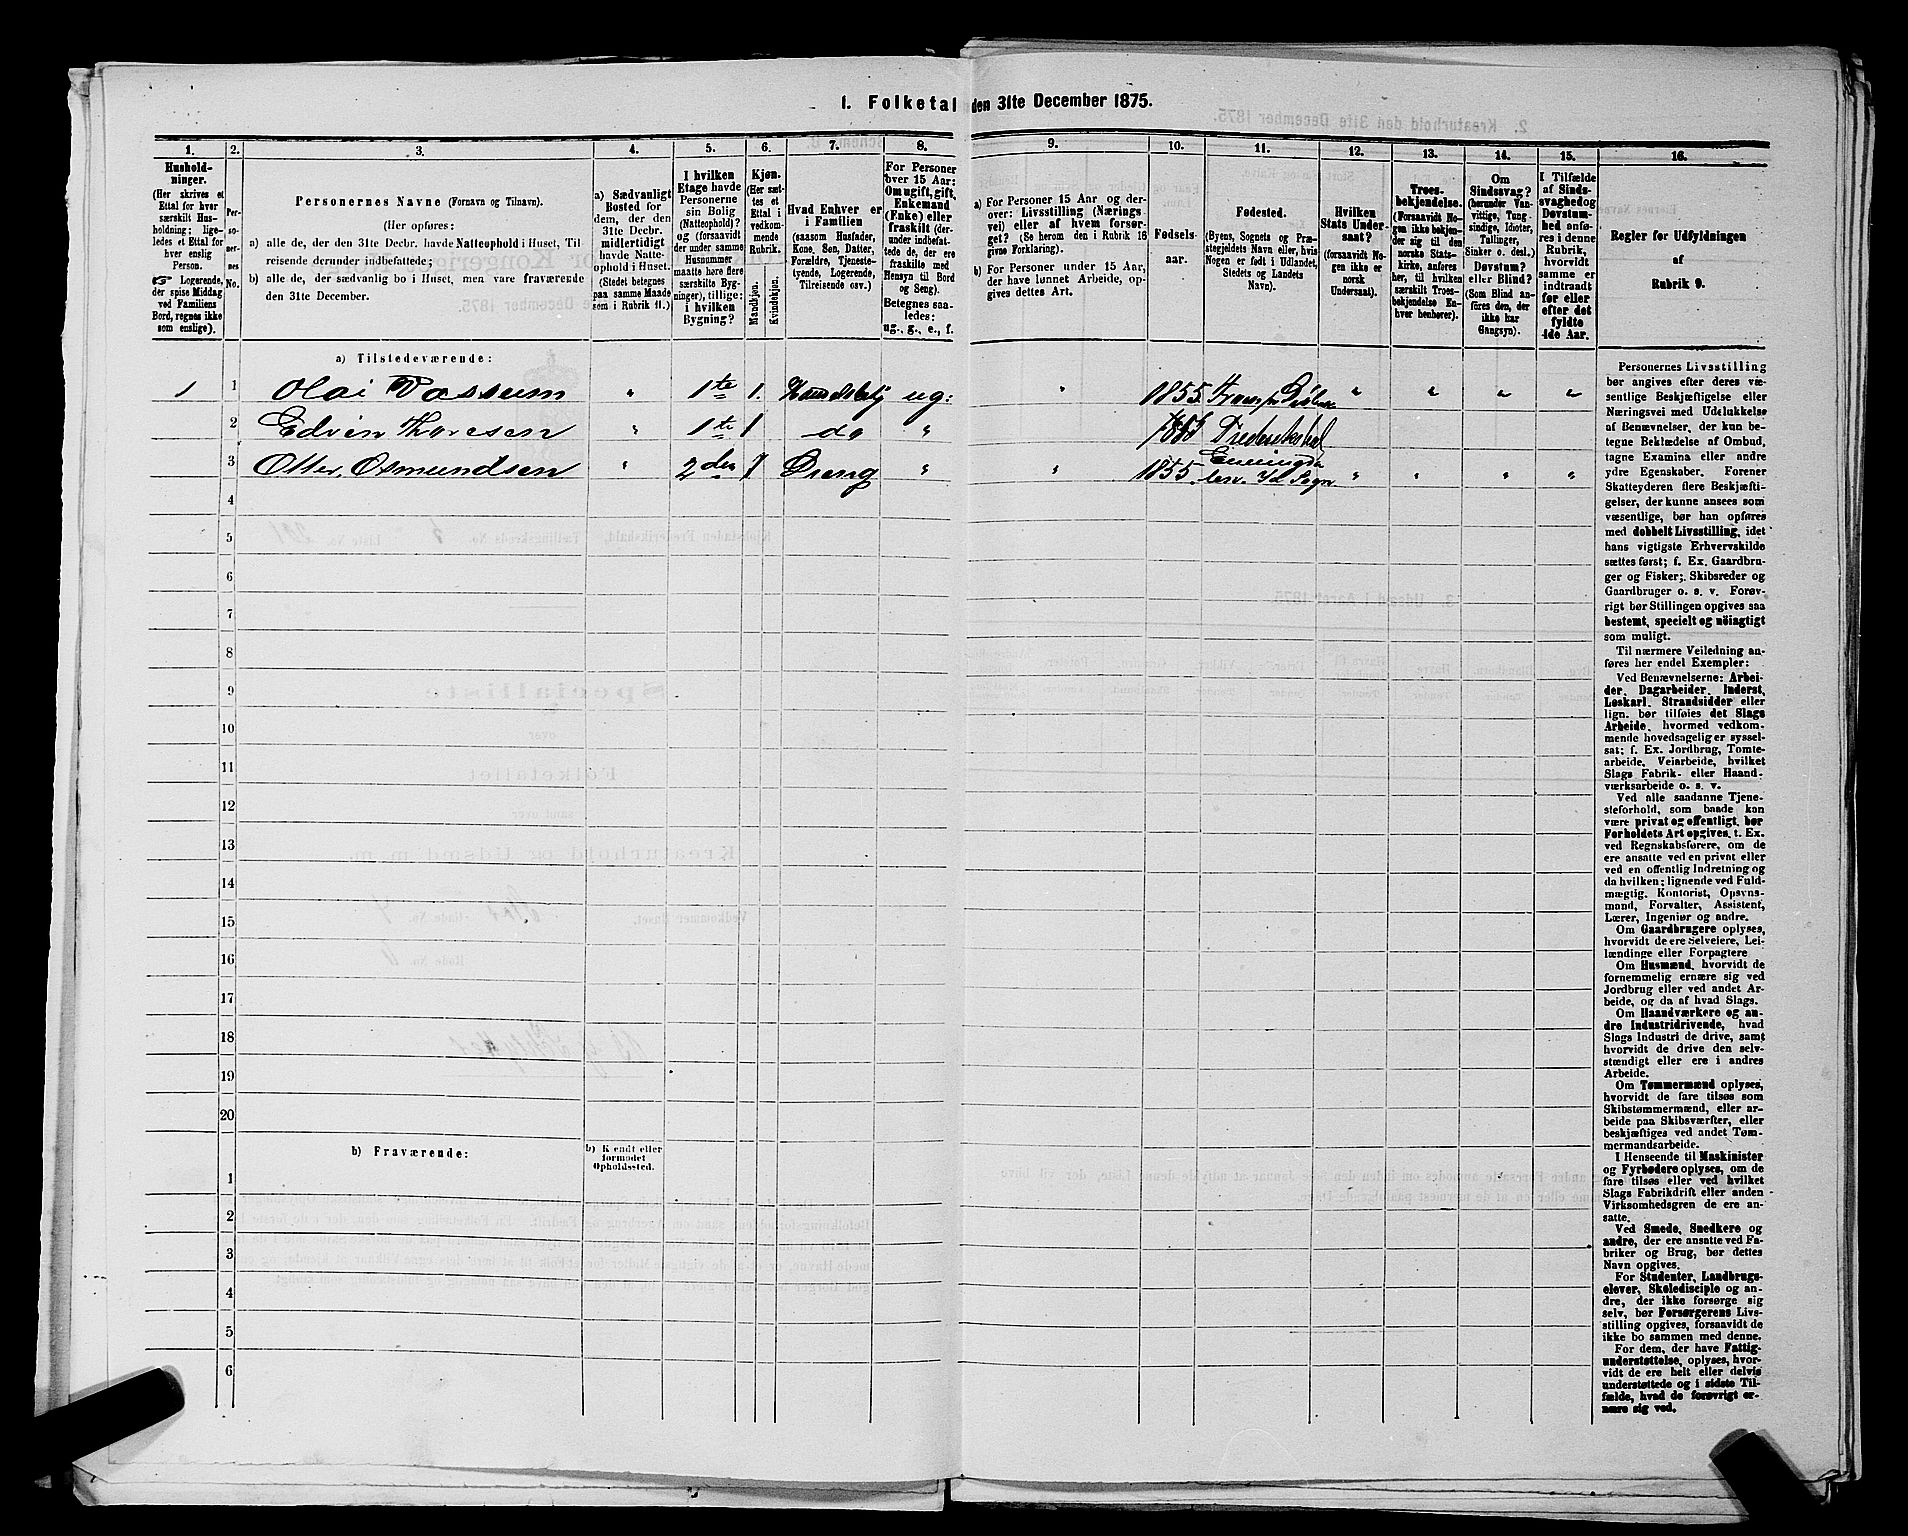 1. Folketal den 31te December 1875.
1. 2. 3. 4. 5. 6. 7. 8. 9. 10. 11. 12. 13. 14. 15. 16.
Hushold-
ninger.
(Her skrives et
Ettal for hver
særskilt Hus-
holdning; lige-
ledes et Ettal for
hver enslig
Person.
☞ Logerende,
der spise Middag
ved Familiens
Bord, regnes ikke
som enslige).
Per-
so-
ner-
nes
No.
Personernes Navne (Fornavn og Tilnavn).
(Her opføres:
a) alle de, der den 31te Decbr. havde Natteophold i Huset, Til-
reisende derunder indbefattede;
b) alle de, der sædvanlig bo i Huset, men vare fraværende
den 31te December.
a) Sædvanligt
Bosted for
dem, der den
31te Decbr.
midlertidigt
havde Natte-
ophold i Huset.
(Stedet betegnes
paa samme Maade
som i Rubrik 11.)
I hvilken
Etage havde
Personerne
sin Bolig
(Natteophold)?
og (forsaavidt
der under samme
Husnummer
maatte høre flere
særskilte Byg-
ninger), tillige:
i hvilken
Bygning?
Kjøn.
(Her sæt-
tes et
Ettal i
vedkom-
mende
Rubrik.
Mandkjøn.
Kvindekjøn.
Hvad Enhver er
i Familien
(saasom Husfader,
Kone, Søn, Datter,
Forældre, Tjeneste-
tyende, Logerende,
Tilreisende osv.)
For Personer
over 15 Aar:
Om ugift, gift,
Enkemand
(Enke) eller
fraskilt (der-
under indbefat-
tede de, der ere
fraskilte med
Hensyn til Bord
og Seng).
Betegnes saa-
ledes:
ug., g., e., f.
a) For Personer 15 Aar og der-
over: Livsstilling (Nærings-
vei) eller af hvem forsør-
get? (Se herom den i Rubrik 16
givne Forklaring).
b) For Personer under 15 Aar,
der have lønnet Arbeide, op-
gives dettes Art.
Fødsels-
aar.
Fødested.
(Byens, Sognets og Præ-
stegjeldets Navn eller, hvis
Nogen er født i Udlandet,
Stedets og Landets
Navn).
Hvilken
Stats Under-
saat?
(forsaavidt No-
gen ikke er
norsk
Undersaat).
Troes-
bekjendelse.
(Forsaavidt No-
gen ikke bekjen-
der sig til den
norske Stats-
kirke, anføres
her, til hvilken
særskilt Troes-
bekjendelse En-
hver henhører).
Om
Sindssvag?
(herunder Van-
vittige, Tung-
sindige, Idioter,
Tullinger,
Sinker o. desl.)
Døvstum?
eller Blind?
(Som Blind an-
føres den, der
ikke har
Gangsyn).
I Tilfælde
af Sinds-
svaghed og
Døvstum-
hed anfø-
res i denne
Rubrik,
hvorvidt
samme er
indtraadt
før eller
efter det
fyldte
4de Aar.
Regler for Udfyldningen
af
Rubrik 9.
a) Tilstedeværende:
1 1 Olai Vassum " 1te 1. ug: " 1855. " " " "
2 Edvin Thoresen " 1te 1 do " Frederikshal
3 Otter Osmundsen " 2den 1 Dreng " " 1855. Id Sogn " " " "
4
5
6
7
8
9
10
11
12
13
14
15
16
17
18
19
20
b) Fraværende:
b) Kjendt eller
formodet
Opholdssted.
1
2
3
4
5
6
Personernes Livsstilling
bør angives efter deres væ-
sentlige Beskjæftigelse eller
Næringsvei med Udelukkelse
af Benævnelser, der kun be-
tegne Beklædelse af Ombud,
tagne Examina eller andre
ydre Egenskaber. Forener
Skatteyderen flere Beskjæfti-
gelser, der kunne ansees som
væsentlige, bør han opføres
med dobbelt Livsstilling, idet
hans vigtigste Erhvervskilde
sættes først; f. Ex. Gaardbru-
ger og Fisker; Skibsreder og
Gaardbruger o. s. v. Forøv-
rigt bør Stillingen opgives saa
bestemt, specielt og nöiagtigt
som muligt.
Til nærmere Veiledning an-
føres her endel Exempler:
Ved Benævnelserne: Arbei-
der, Dagarbeider, Inderst,
Løskarl, Strandsidder eller
lign. bør tilføies det Slags
Arbeide, hvormed vedkom-
mende hovedsagelig er syssel-
sat; f. Ex. Jordbrug, Tomte-
arbeide, Veiarbeide, hvilket
Slags Fabrik- eller Haand-
værksarbeide o. s. v.
Ved alle saadanne Tjene-
steforhold, som baade kan
være privat og offentligt, bør
Forholdets Art opgives, t. Ex.
ved Regnskabsførere, om de
ere ansatte ved en privat eller
ved en offentlig Indretning og
da hvilken; lignende ved Fuld-
mægtig, Kontorist, Opsyns-
mand, Forvalter, Assistent,
Lærer, Ingeniør og andre.
Om Gaardbrugere oplyses,
hvorvidt de ere Selveiere, Lei-
lændinge eller Forpagtere
Om Husmænd, hvorvidt de
fornemmelig ernære sig ved
Jordbrug eller ved andet Ar-
beide, og da af hvad Slags.
Om Haandværkere og an-
dre Industridrivende, hvad
Slags Industri de drive, samt
hvorvidt de drive den selv-
stændigt eller ere i andres
Arbeide.
Om Tømmermænd oplyses,
hvorvidt de fare tilsøs som
Skibstømmermænd, eller ar-
beide paa Skibsværfter, eller
beskjæftiges ved andet Tøm-
mermandsarbeide.
I Henseende til Maskinister
og Fyrbødere oplyses, om de
fare tilsøs eller ved hvilket
Slags Fabrikdrift eller anden
Virksomhedsgren de ere an-
satte.
Ved Smede, Snedkere og
andre, der ere ansatte ved Fa-
briker og Brug, bør dettes
Navn opgives.
For Studenter, Landbrugs-
elever, Skoledisciple og an-
dre, der ikke forsørge sig
selv, bør Forsørgerens Livs-
stilling opgives, forsaavidt de
ikke bo sammen med denne.
For dem, der have Fattig-
understøttelse, oplyses, hvor-
vidt de ere helt eller delvis
understøttede og i sidste Til-
fælde, hvad de forøvrigt er-
nære sig ved.